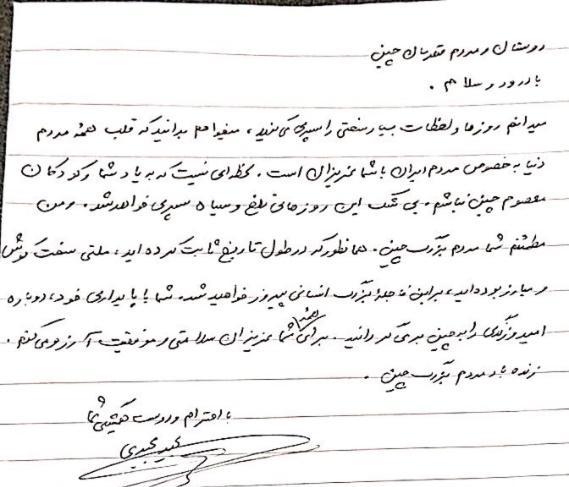 دوستان و مردم مهربان چین
با درود و سلام .
میدانم روزها و لحظات بسیار سختی را سپری می‌کنید ، میخواهم بدانید که قلب همهٔ مردم
دنیا به خصوص مردم ایران با شما عزیزان است . لحظه‌ای نیست که به یاد شما و کودکان
معصوم چین نباشم . بی شک این روزهای تلخ و سیاه سپری خواهد شد . و من
مطمئنم شما مردم بزرگ چین . همانطور که در طول تاریخ ثابت کرده اید ، ملتی سخت کوش
و مبارز بوده‌اید ، بر این فاجعهٔ بزرگ انسانی پیروز خواهید شد . شما با پایداری خود ، دوباره
امید و زندگی را به چین برمی گردانید . برای همهٔ شما عزیزان سلامتی و موفقیت آرزو می کنم .
زنده باد مردم بزرگ چین .
با احترام و دوست همیشگی شما
مجید مجیدی